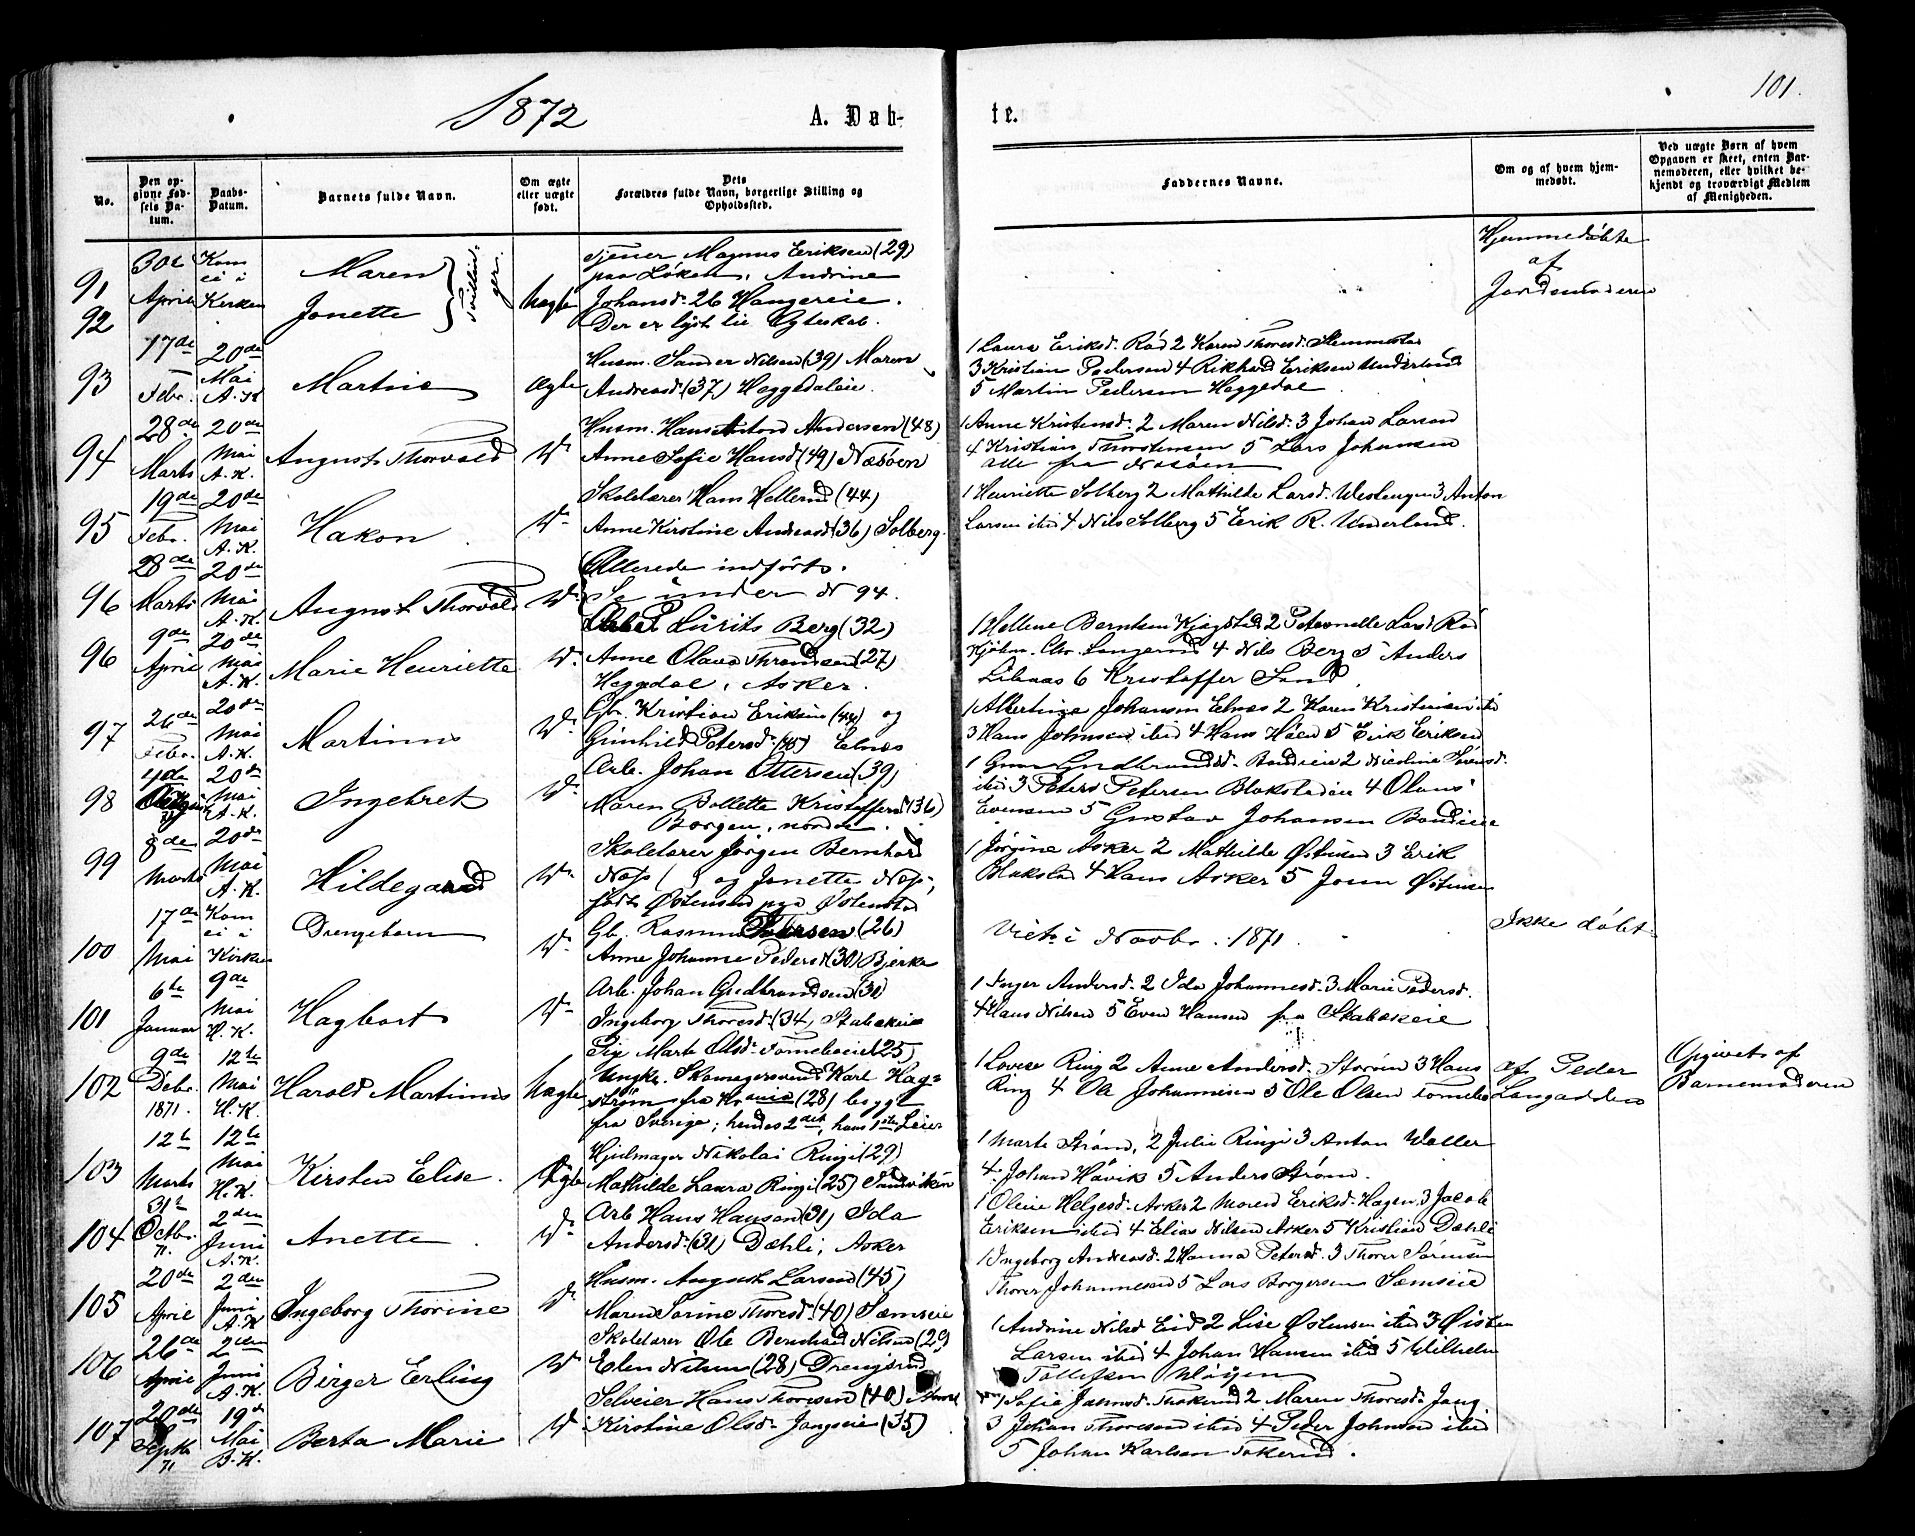 1872
A. Døb-
te.
101.
No.
Den op-
givne Fød-
sels Da-
tum.
Daabs-
Datum.
Barnets fulde Navn.
Om ægte
eller uægte
født.
Dets
Forældres fulde Navn, borgerlige Stilling og
Opholdssted.
Faddernes Navne.
Om og af hvem hjem-
medøbt.
Ved uægte Børn af hvem
Opgaven er skeet, enten Bar-
nemoderen, eller hvilket be-
kjendt og troværdigt Medlem
af Menigheden.
91
92
April
Kom
ei i
Kirken
Maren
Jonette
Tvillin-
ger.
Uægte
Tjener Magnus Eriksen (29)
paa Løken, Andrine
Johansd. 26 Hangereie.
Der er lyst til Ægteskab.
Hjemmedøbte
af
Jordemoderen
93
17de
Febr.
20de
Mai
A.K.
Martine
Ægte
Husm. Sander Nilsen (39) Maren
Andreasd (37) Heggedaleie.
1 Laura Eriksd. Rød 2 Karen Thoresd. Slemmestad
3 Kristian Pedersen 4 Rikhard Eriksen Underlund
5 Martin Pedersen Heggedal
94
28de
Marts
20de
Mai
A.K.
August Thorvald
Husm. Hans Anton Andersen (48)
Anne Sofie Hansd (42) Næsøen
1 Anne Kristensd. 2 Maren Nilsd. 3 Johan Larsen
4 Kristian Thorstensen 5 Lars Johansen
Alle fra Næsøen
95
19de
Febr.
20de
Mai
A.K.
Hakon
Skolelærer Hans Hellerud (44)
Anne Kirstine Andreasd (36) Solberg.
1 Henriette Solberg 2 Mathilde Larsd. Weslengen 3 Anton
Larsen ibid 4 Nils Solberg 5 Erik R. Underlund.
96
28de
Marts
20de
Mai
A.K.
August Thorvald
Allerede indført.
Se under N 94.
96
9de
April
20de
Mai
A.K.
Marie Henriette
Lurits Berg (32)
Anne Olava Thrandsen (27)
Heggedal, Asker.
1 Hellene Berntsen Kjegstad 2 Peternelle Larsd Rød
4 Nils Berg 5 Anders
6 Kristoffer
97
26de
Febr.
20de
Mai
A.K.
Martinus
Gb. Kristian Eriksen (44) og
Gunhild Petersd. Elnæs
1 Albertine Johansen Elnæs 2 Karen Kristiansen ibid
3 Hans Johnsen ibid 4 Hans Høen 5 Erik Eriksen
98
4de
20de
Mai
A.K.
Ingebret
Arb. Johan Ottersen (39)
Maren Bollette Kristoffersd (36)
Borgen, nordre.
ibid 3 Peters Petersen Blakstadeie 4 Olaus
Evensen 5 Gustav Johansen
99
8de
Marts
20de
Mai
A.K.
Hildegard
Skolelærer Jørgen Bernhard
Næss ( ) og Jonette Næss,
født Østensen paa Østenstad
1 Jørgine Asker 2 Mathilde Østensen 3 Erik
Blakstad 4 Hans Asker 5 Jonn Østensen
100
17de
Mai
Kom
ei i
Kirke
Drengebarn
Gb. Rasmus Petersen (26)
Anne Johanne Pedersd (30) Bjerke
Viet i Novbr. 1871
Ikke døbt
101
6te
Januar
9de
Mai
H.K.
Hagbart
Arb. Johan Gudbrandsen (31)
Ingeborg Thoresd. (34) Stabækeie
1 Inger Andersd. 2 Ida Johannesd. 3 Marie Pedersd.
4 Hans Nilsen 5 Even Hansen fra Stabækeie
102
9de
Debr.
1871.
12te
Mai
H.K.
Harald Martinus
Uægte
Pige Marte Olsd. Tomeleeie (25)
Ungk. Skomagersvend Karl Hag-
strøm fra Krania (28) begge
fra Sverige; hendes 2det, hans 1ste Leier
1 Lovise Ring 2 Anne Andersd. Storøen 3 Hans
Ring 4 Ole Johannesen 5 Ole Olsen
af Peder
Langaadden
Opgivet af
Barnemoderen
103
12te
Marts
12te
Mai
H.K.
Kirsten Elise.
Ægte
Hjulmager Nikolai Ringi (29)
Mathilde Laura Ringi (25) Sandviken
1 Marte Strøm, 2 Julie Ringi 3 Anton Waller
4 Johan Høvik 5 Anders Strøm.
104
31te
Octbr.
71.
2den
Juni
A.K.
Anette
Arb Hans Hansen (31) Ida
Andersd. (31) Dæhli, Asker
1 Oleie Helgesd. Asker 2 Maren Eriksd. Hagen. 3 Jacob
Eriksen ibid 4 Elias Nilsen Asker 5 Kristian Dæhli
105
20de
April
2den
Juni
A.K
Ingeborg Thorine
Husm. August Larsen (45)
Maren Sorine Thoresd. (40) Sæmseie
1 Ingeborg Andreasd. 2 Hanna Petersd. 3 Thorer Sørensen
Thorer Johannesen 5 Lars Borgersen Sæmseie
106
26de
April
2den
Juni
A.K.
Birger Erling
Skolelærer Ole Bernhard Nilsen (29)
Elen Nilsen (28) Drengsrud
1 Andrine Nilsd Eid 2 Lise Østensen ibid 3 Østen
Larsen ibid 4 Johan Hansen ibid 5 Wilhelm
Tollefsen
107
20de
Septbr
71
19de
Mai
B.K.
Berta Marie
Selveier Hans Thoresen (40)
Kirstine Olsd. Jongseie (35)
1 Sofie Jansd. Tokerud 2 Maren Thoresd. Jong
3 Johan Thoresen ibid 4 Peder Johnsen ibid
5 Johan Karlsen Tokerud.